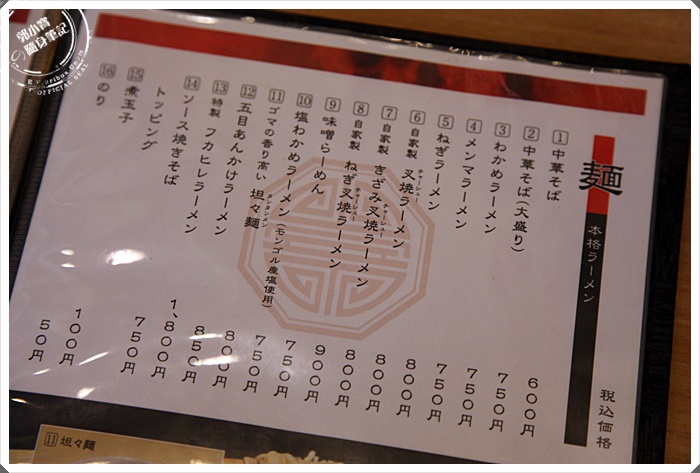 麺
本格ラーメン
税込価格
1 中華そば 600円
2 中華そば(大盛り) 750円
3 わかめラーメン 750円
4 メンマラーメン 750円
5 ねぎラーメン 800円
6 自家製 叉焼ラーメン 800円
チャーシュー
7 自家製 きざみ叉焼ラーメン 800円
チャーシュー
8 自家製 ねぎ叉焼ラーメン 900円
チャーシュー
9 味噌らーめん 750円
10 塩わかめラーメン(モンゴル産塩使用) 750円
11 ゴマの香り高い 坦々麺 800円
タンタンメン
12 五目あんかけラーメン 850円
13 特製 フカヒレラーメン 1、800円
14 ソース焼きそば 750円
トッピング
15 煮玉子 100円
16 のり 50円
11 坦々麺
郭小寶
の隨身筆記
OFFICIAL SEAL